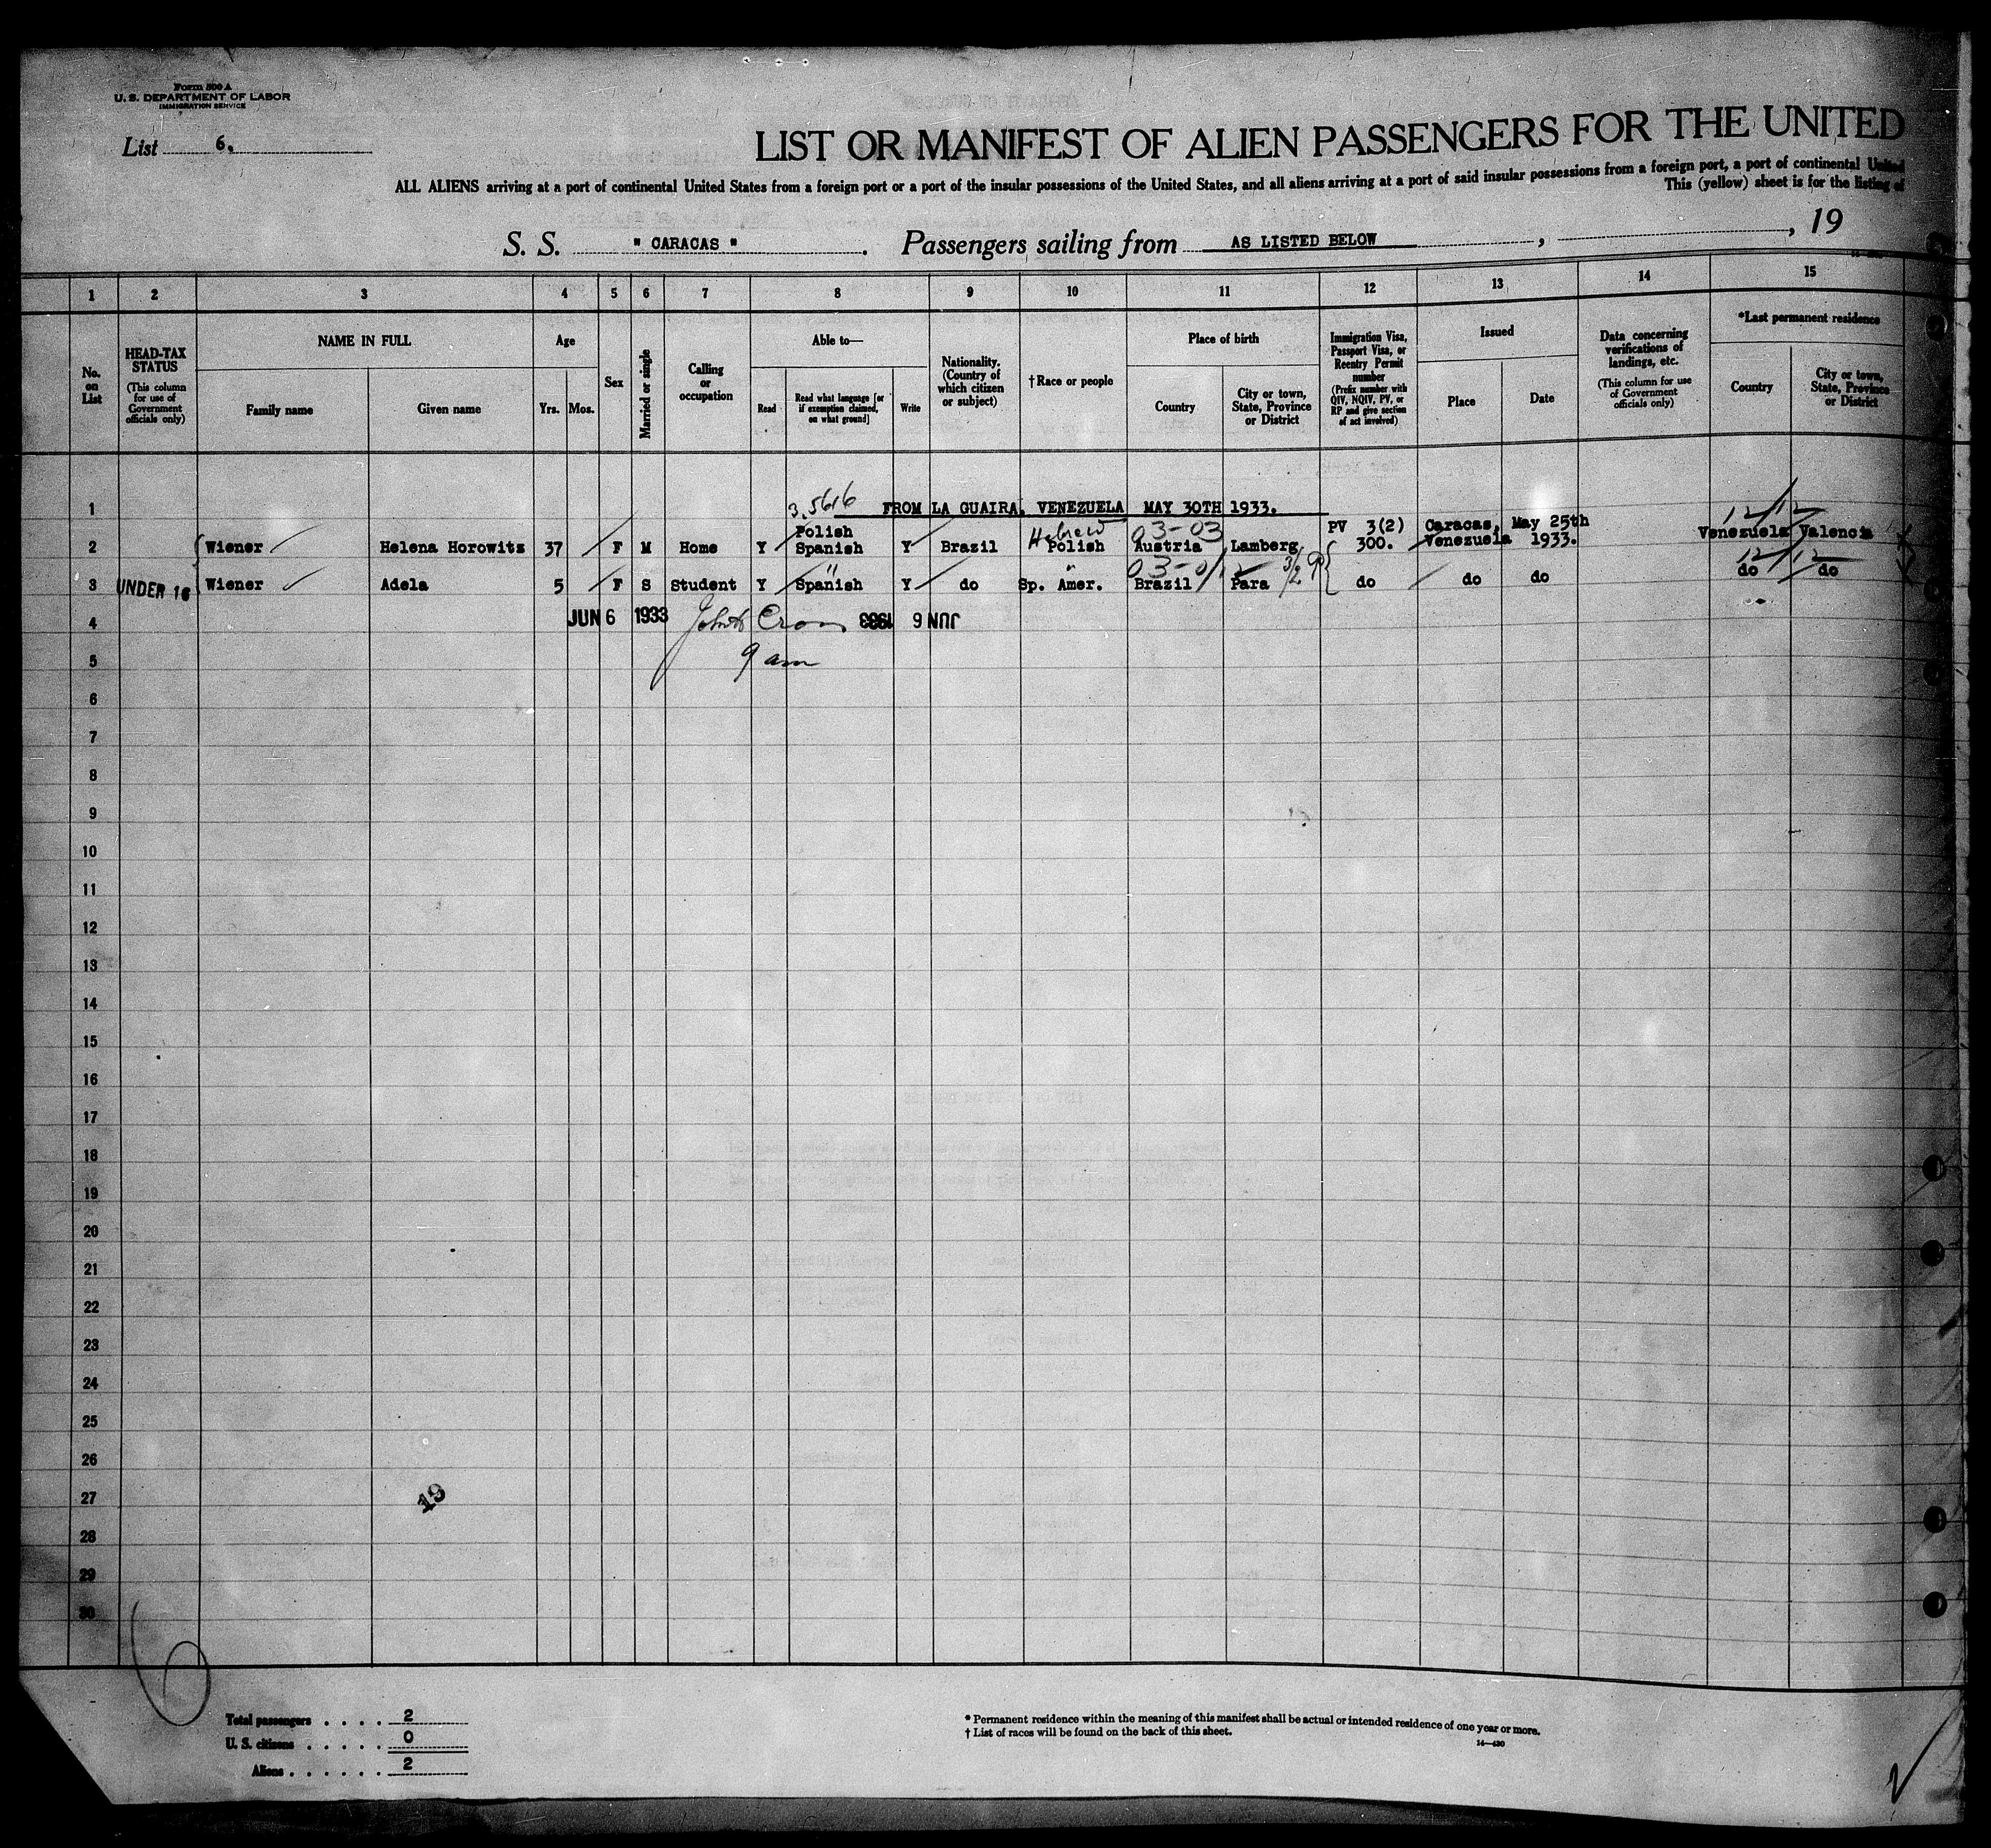 Form 500 A
U. S. DEPARTMENT OF LABOR
IMMIGRATION SERVICE
List 6.
LIST OR MANIFEST OF ALIEN PASSENGERS FOR THE UNITED
ALL ALIENS arriving at a port of continental United States from a foreign port or a port of the insular possessions of the United States, and all aliens arriving at a port of said insular possessions from a foreign port, a port of continental United
This (yellow) sheet is for the listing of
S. S. " CARACAS " . Passengers sailing from AS LISTED BELOW , , 19
1 2 3 4 5 6 7 8 9 10 11 12 13 14 15
No. on List
HEAD-TAX STATUS
(This column for use of Government officials only)
NAME IN FULL
Family name Given name
Age
Yrs. Mos.
Sex
Married or single
Calling or occupation
Able to—
Read
Read what language [or if exemption claimed, on what ground]
Write
Nationality. (Country of which citizen or subject)
†Race or people
Place of birth
Country
City or town, State, Province or District
Immigration Visa, Passport Visa, or Reentry Permit number
(Prefix number with QIV, NQIV, PV, or RP and give section of act involved)
Issued
Place Date
Data concerning verifications of landings, etc.
(This column for use of Government officials only)
*Last permanent residence
Country
City or town, State, Province or District
1 3.5616 FROM LA GUAIRA, VENEZUELA MAY 30TH 1933.
Polish Hebrew 03-03 PV 3(2) Caracas, May 25th 12/12
2 Wiener Helena Horowitz 37 F M Home Y Spanish Y Brazil Polish Austria Lamberg 300. Venezuela 1933. Venezuela Valencia
" " 03-0/12 3/29 12/12
3 UNDER 16 Wiener Adela 5 F S Student Y Spanish Y do Sp. Amer. Brazil Para do do do do do
4 JUN 6 1933 JUN 6 1933
5 9 am
6
7
8
9
10
11
12
13
14
15
16
17
18
19
20
21
22
23
24
25
26
27
19
28
29
30
Total passengers . . . . 2
U. S. citizens . . . . . 0
Aliens . . . . . . 2
* Permanent residence within the meaning of this manifest shall be actual or intended residence of one year or more.
† List of races will be found on the back of this sheet.
14—430